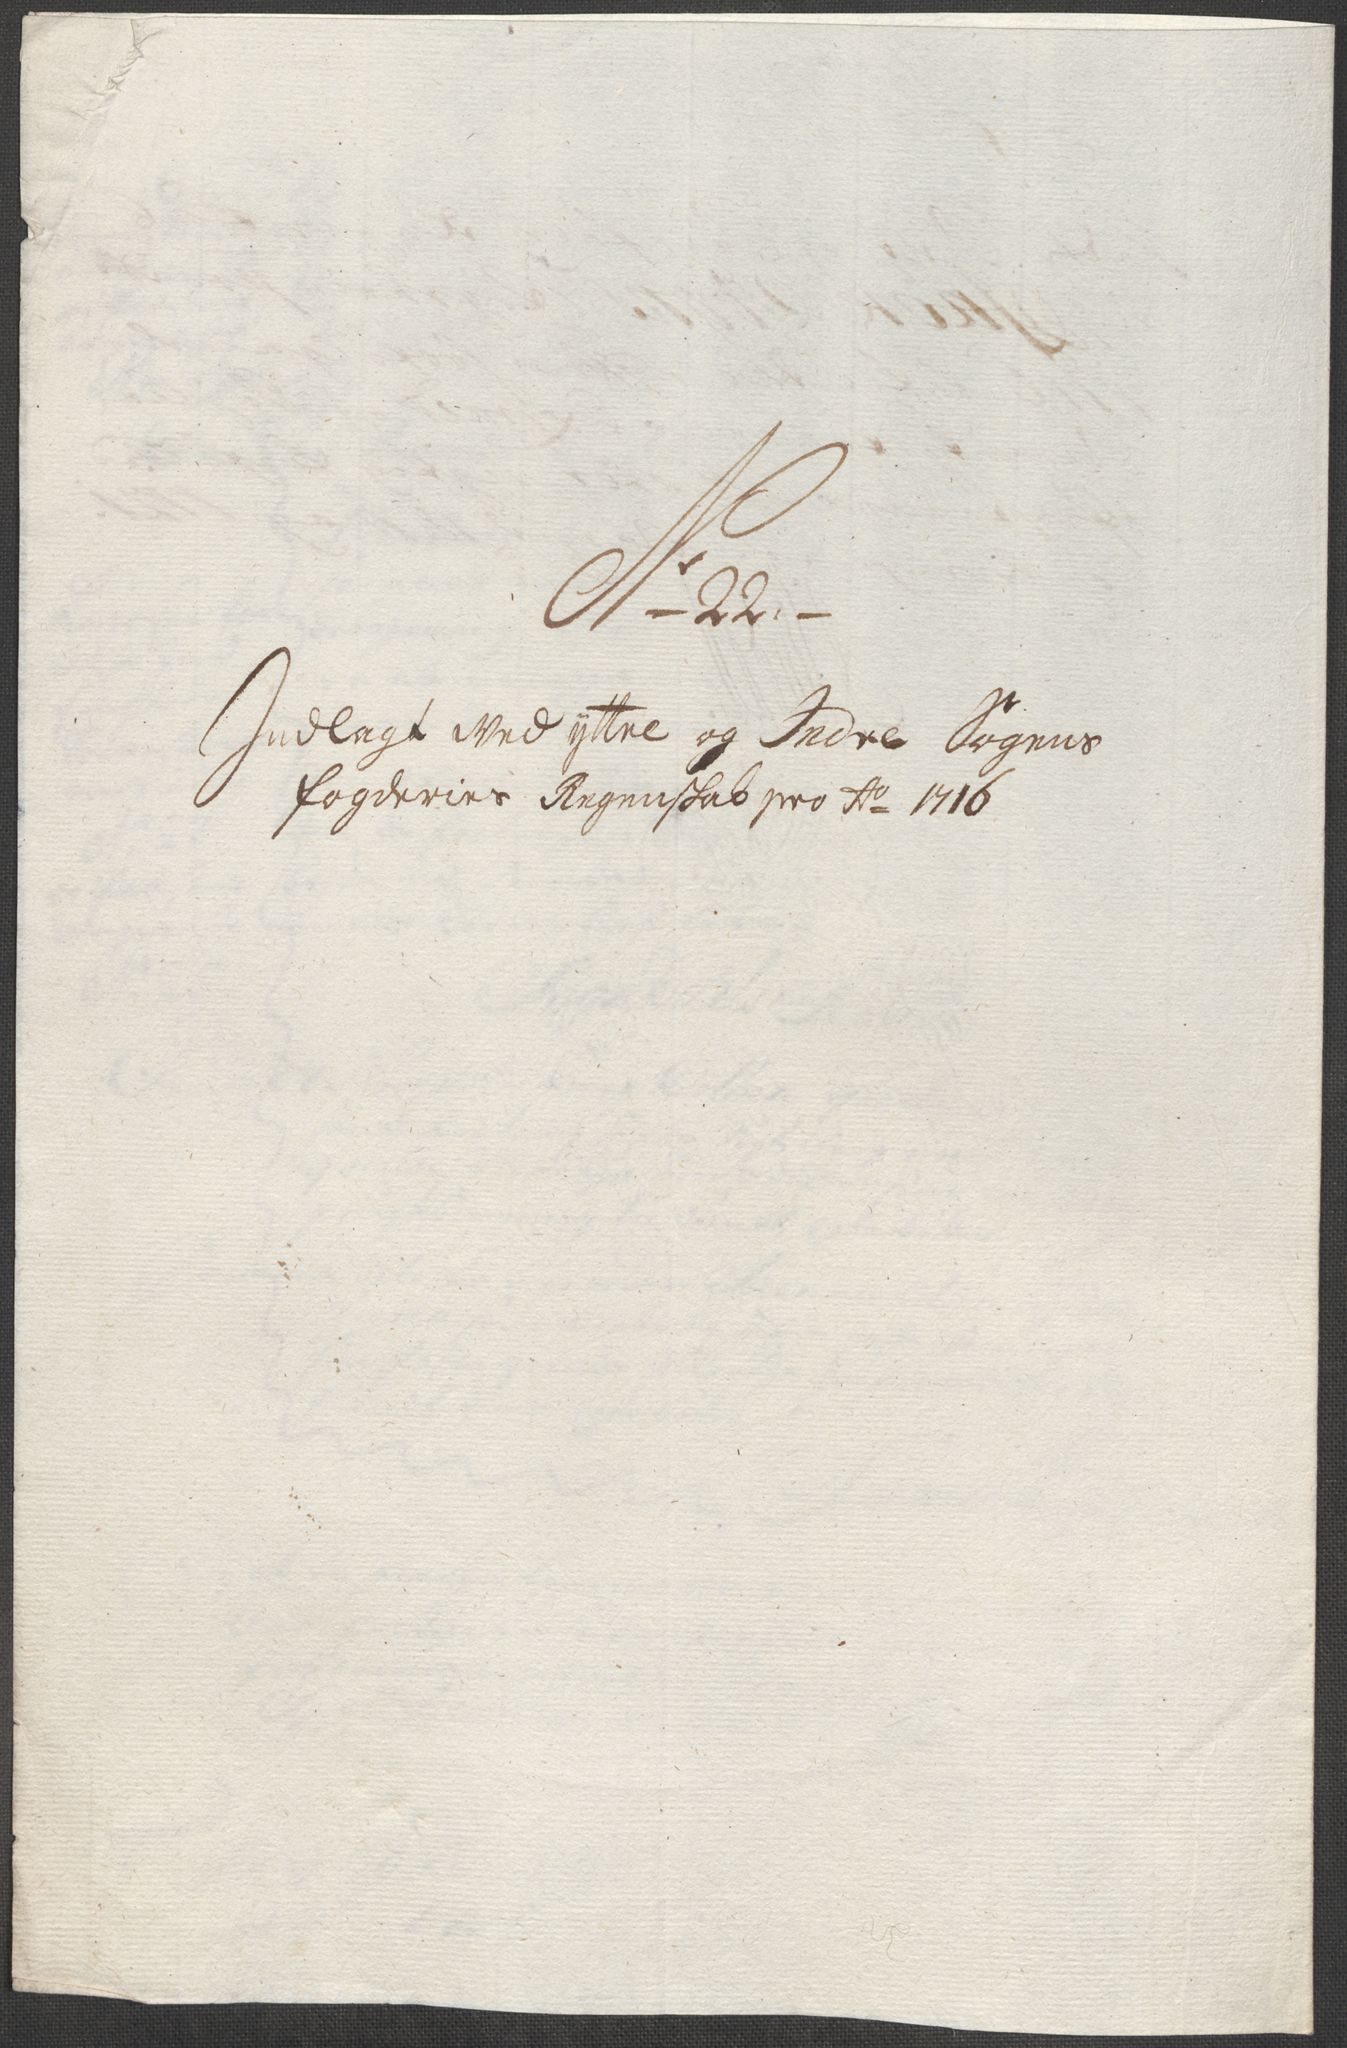 Nr 22.
Indlagt Med yttre og Indre Sogens
fogderies Regenskab pro Ao 1716